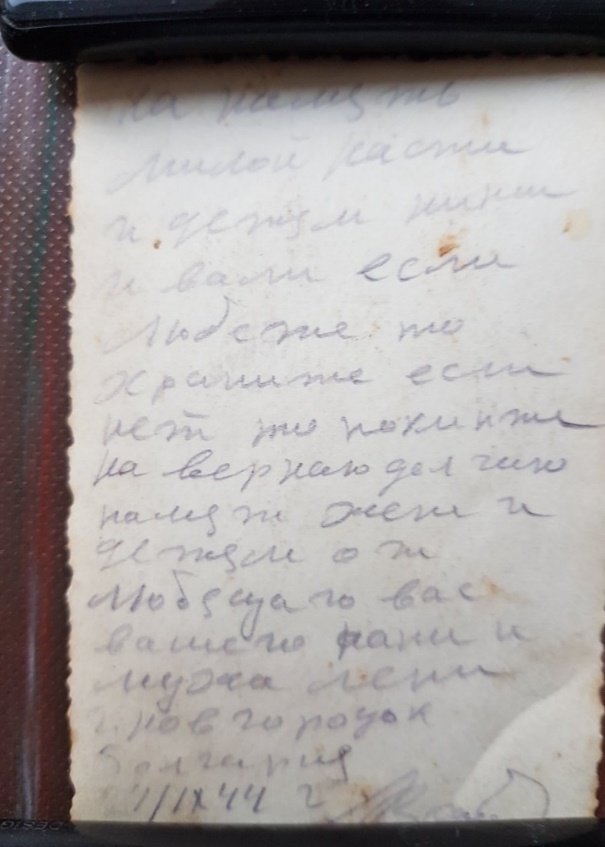 на памядь
милой Насти
и детям нини
и вали если
Любете то
храните если
нет то покинте
на вернаю долгию
памят жени и
детям от
Любещаго вас
вашего папи и
мужа лени
г. новгородок
Болгария
/IX 44 г